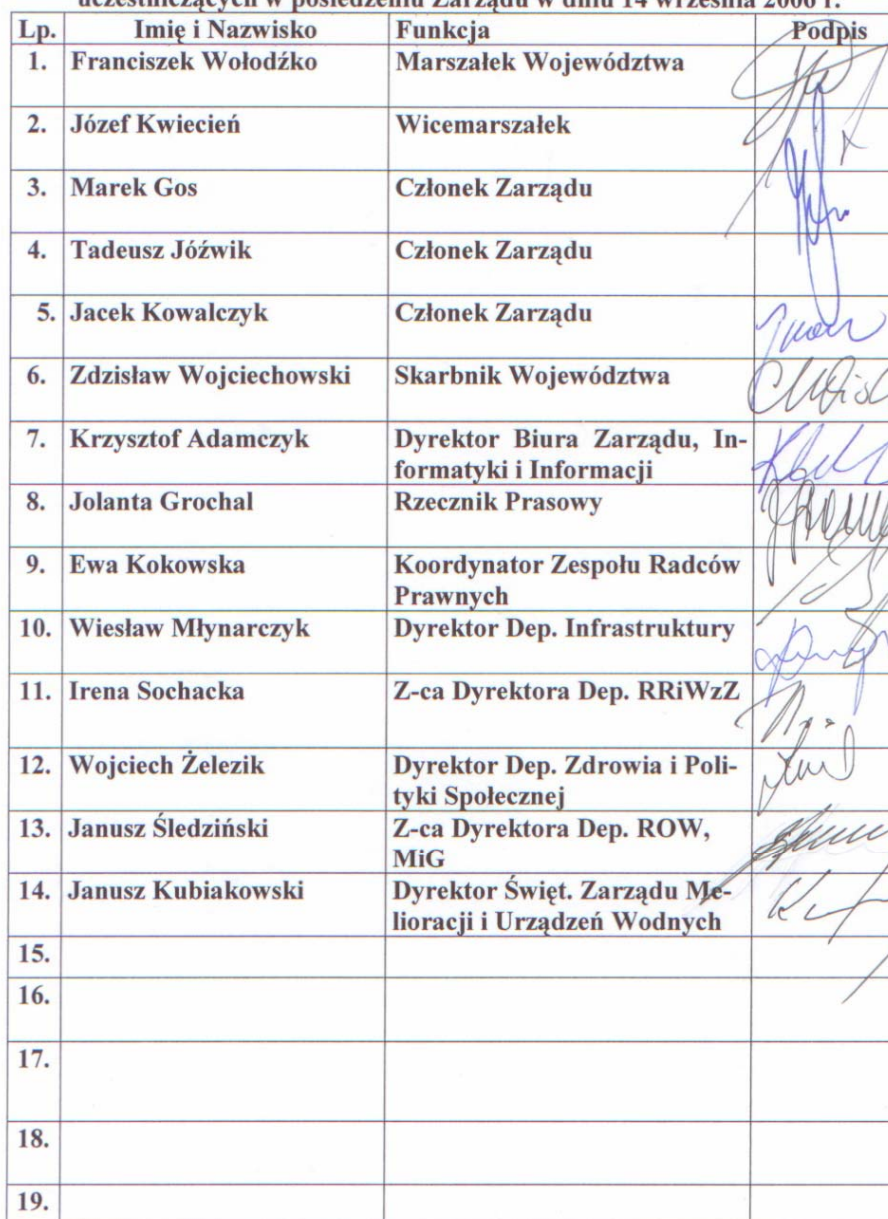 uczestniczących w posiedzeniu Zarządu w dniu 14 września 2006 r.
Lp. Imię i Nazwisko Funkcja Podpis
1. Franciszek Wołodźko Marszałek Województwa
2. Józef Kwiecień Wicemarszałek
3. Marek Gos Członek Zarządu
4. Tadeusz Jóźwik Członek Zarządu
5. Jacek Kowalczyk Członek Zarządu
6. Zdzisław Wojciechowski Skarbnik Województwa
7. Krzysztof Adamczyk Dyrektor Biura Zarządu, In-
formatyki i Informacji
8. Jolanta Grochal Rzecznik Prasowy
9. Ewa Kokowska Koordynator Zespołu Radców
Prawnych
10. Wiesław Młynarczyk Dyrektor Dep. Infrastruktury
11. Irena Sochacka Z-ca Dyrektora Dep. RRiWzZ
12. Wojciech Żelezik Dyrektor Dep. Zdrowia i Poli-
tyki Społecznej
13. Janusz Śledziński Z-ca Dyrektora Dep. ROW,
MiG
14. Janusz Kubiakowski Dyrektor Święt. Zarządu Me-
lioracji i Urządzeń Wodnych
15.
16.
17.
18.
19.